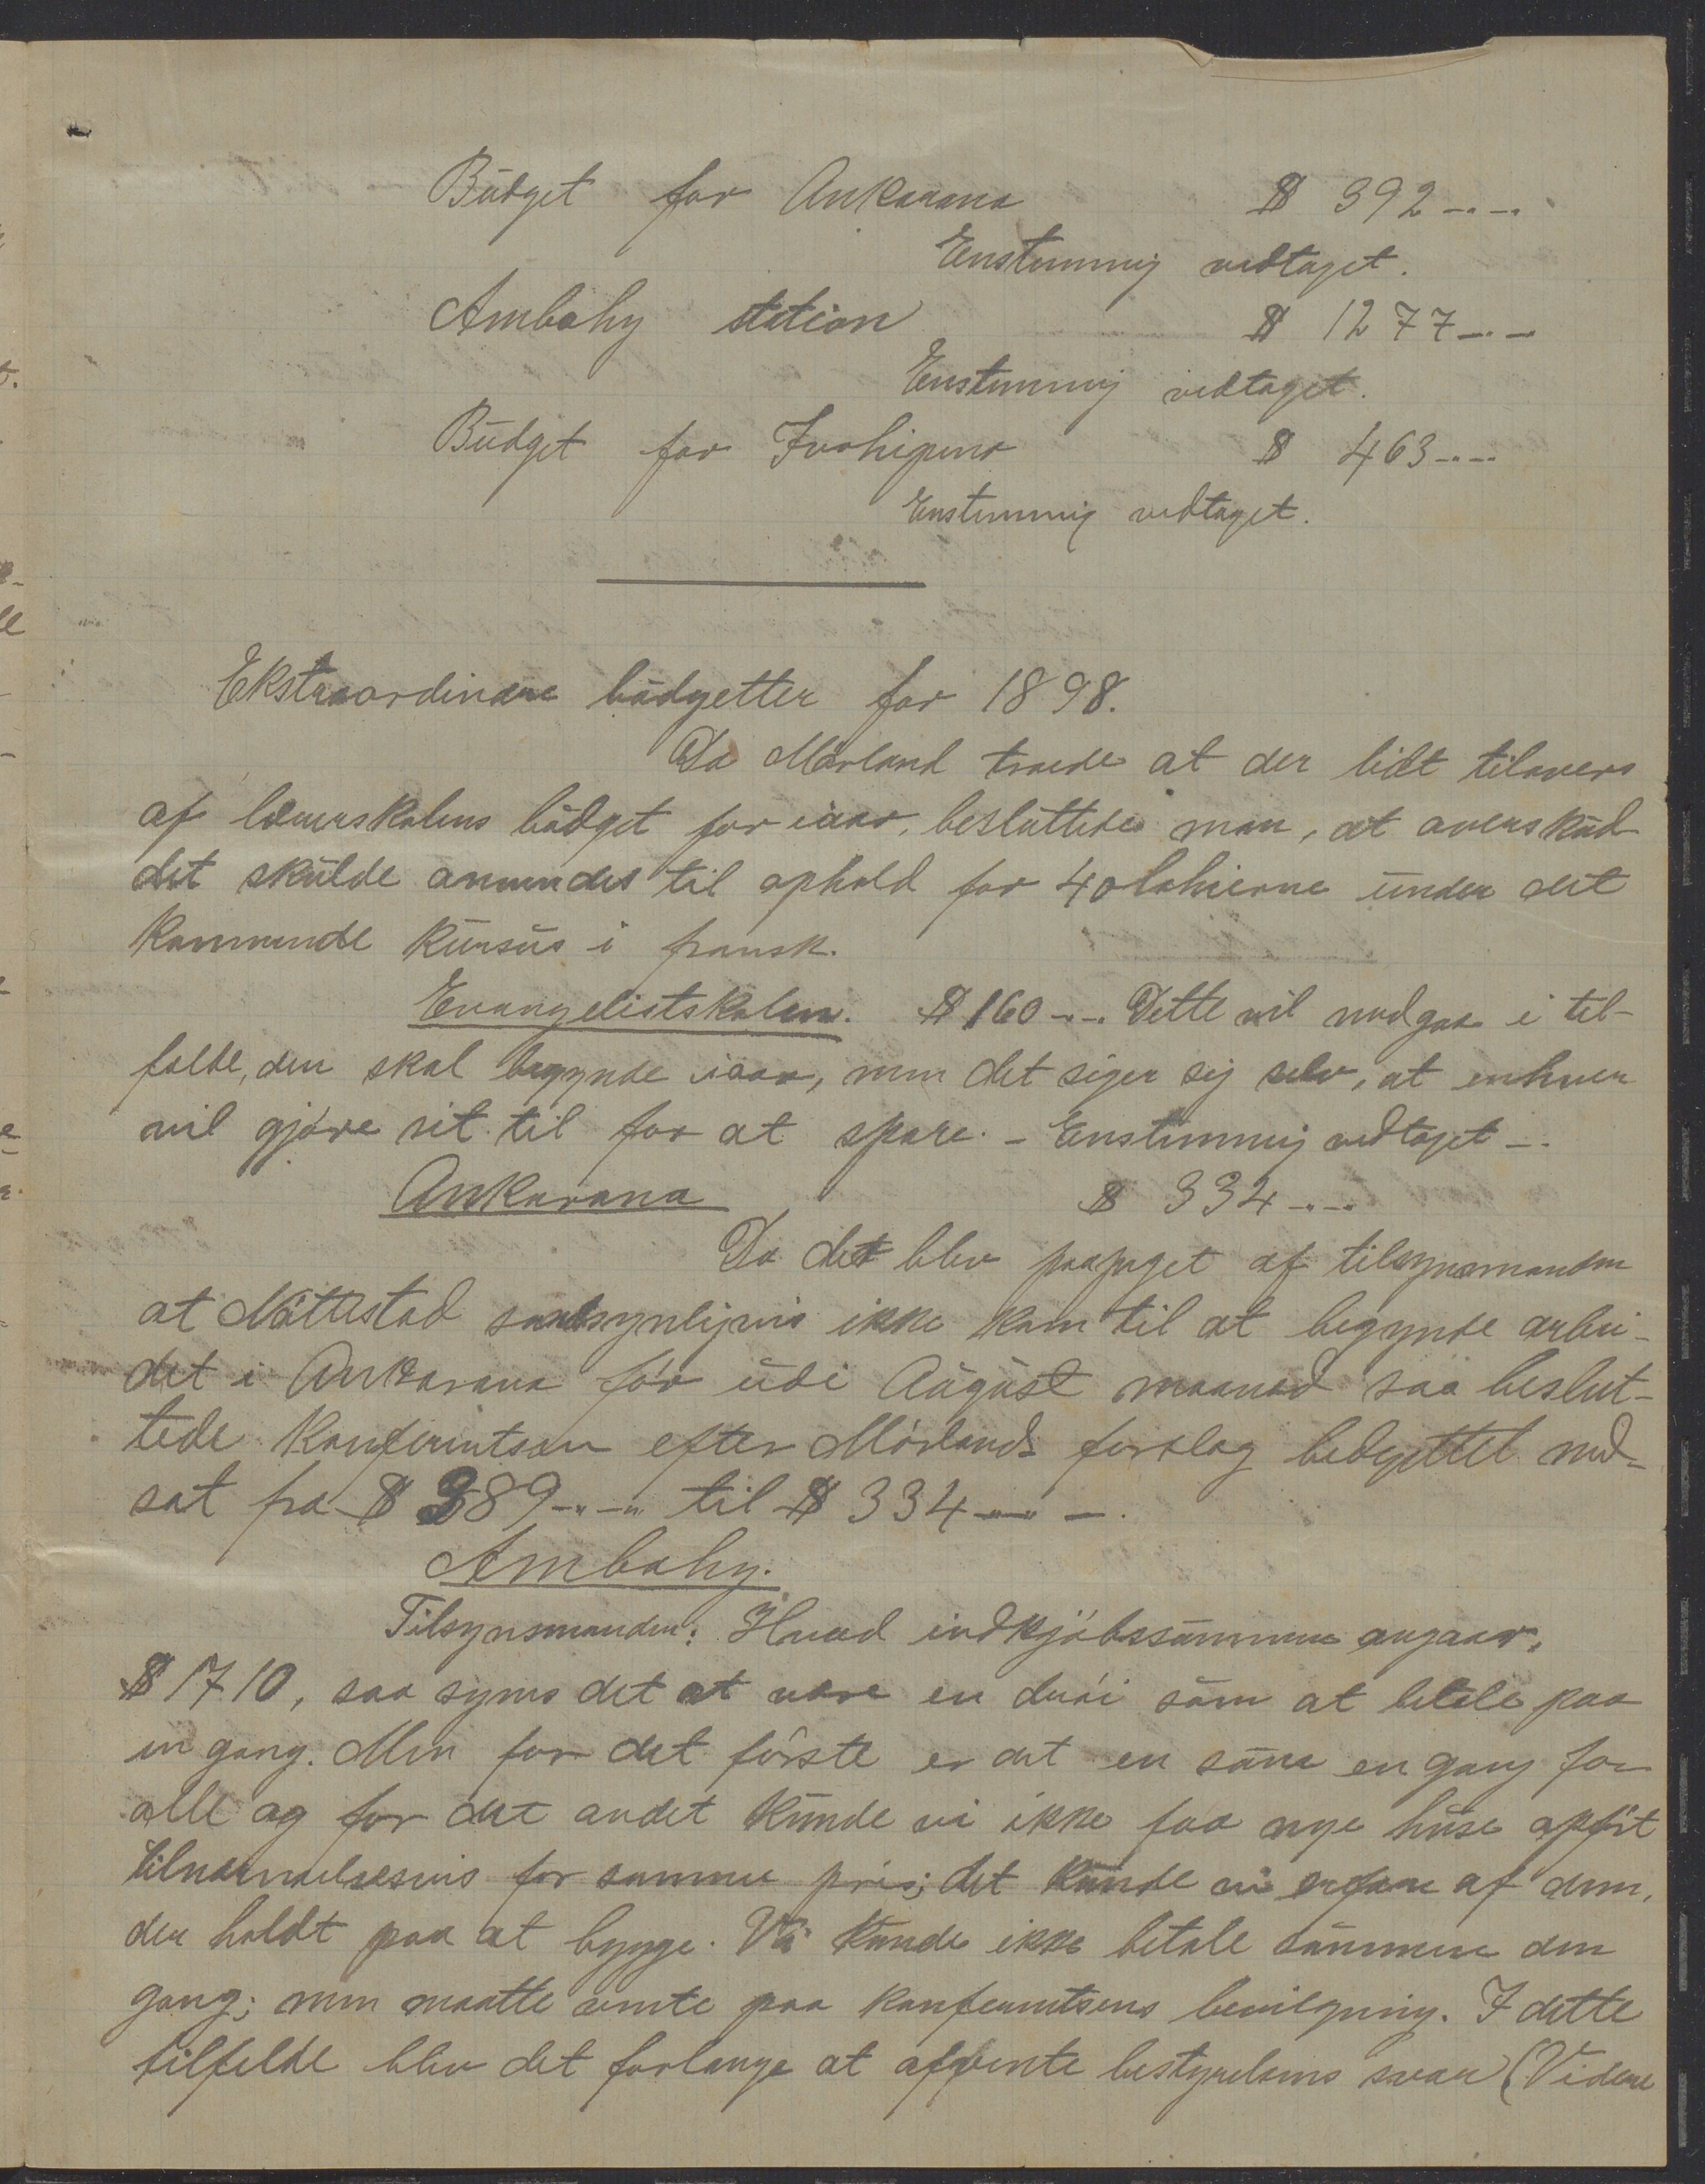 Büdget for Ankarana $ 392 -.-.
Enstemmig vedtaget.
Ambohy station $ 1277 -.-
Enstemmig vedtaget.
Büdget for Ivohipeno $ 463 -.-
Enstemmig vedtaget.

Ekstraordinære büdgetter for 1898.
Da Mørland troede at der lidt tilovers
af lærerskolens büdget for iaar, beslüttede man, at overskud
det skülde anvendes til ophold for 40 lærerne ünder det
kommende kürsüs i fransk.
Evangelistskolen. $ 160 -.-. Dette vil medgaa i til-
fælde, den skal begynde iaar, men det siger sig selv, at enhver
vil gjøre sit til for at spare. - Enstemmig vedtaget -.
Ankarana $ 334 -.-
Da det blev paapeget af tilsynsmanden
at Möttestad sandsynligvis ikke kom til at begynde arbei-
det i Ankarana før üdi Aügüst maaned saa beslut-
tede konferentsen efter Mørlands forslag bedgettet ned-
sat fra $ 389 -.-. til $ 334 -.- -.
Ambohy.
Tilsynsmanden: Hvad indkjøbssümmen angaar,
$ 1710, saa synes det at være en drøi süm at betale paa
en gang. Men for det første er det en süm en gang for
alle og for det andet künde vi ikke faa nye hüse opført
tilnærmelsesvis for samme pris; det künde vi erfare af dem,
der holdt paa at bygge. Vi künde ikke betale sümmen den
gang; men maatte vente paa konferentsens bevilgning. I dette
tilfelde blev det forlange at afvente bestyrelsens svar (Videre